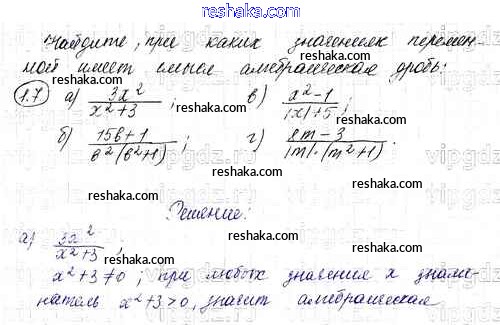 reshaka.com
Найдите, при каких значениях перемен-
ной имеет смысл алгебраическая дробь:
1.7 а) 3x²/(x²+3); в) (x²-1)/(|x|+5);
reshaka.com reshaka.com
б) (15b+1)/(b²(b²+1)); г) (2m-3)/(|m|·(m²+1)).
reshaka.com reshaka.com
Решение:
reshaka.com
а) 3x²/(x²+3);
reshaka.com
x²+3≠0, при любых значение x знаме-
натель x²+3>0, значит алгебраическая
reshaka.com